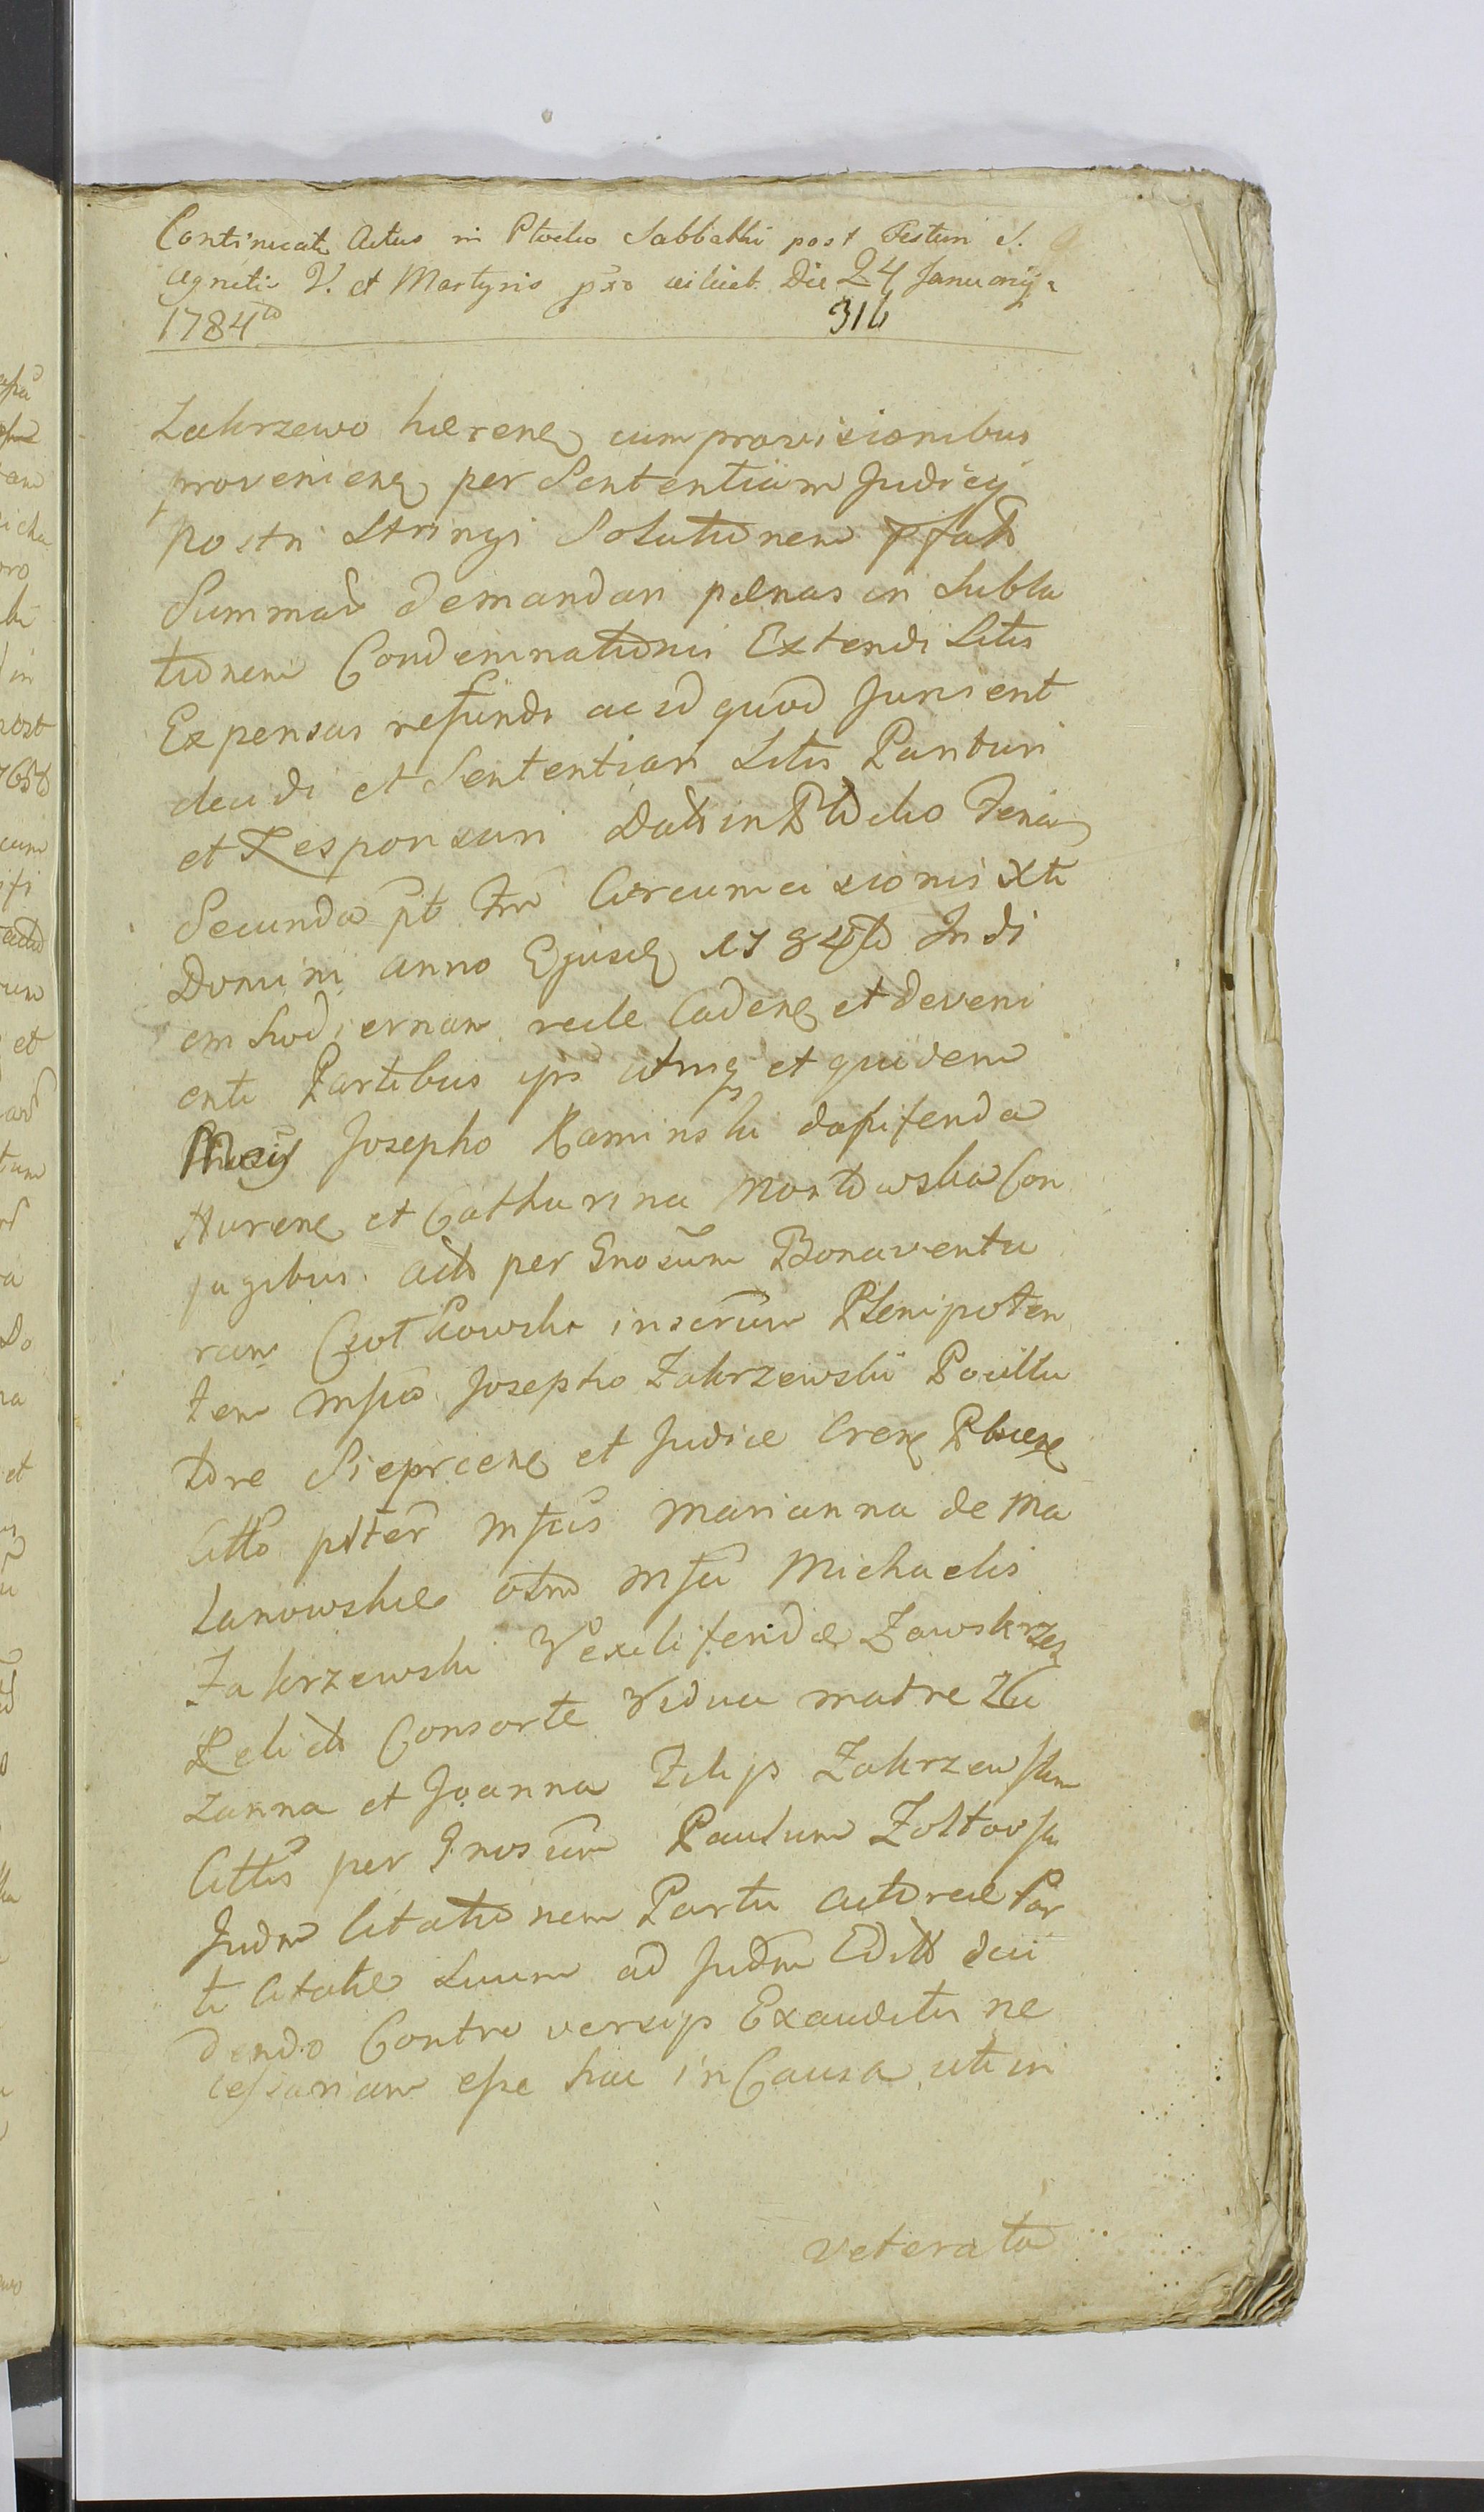 Continuat Actus in Plocko Sabbathi post Festum S.
Agnetis V. et Martyris pro die 24 Januarij
1784to
316
Zakrzewo herene cum provisionibus
proveniene per Sententiam Judicij
nostri Stringi Solutionem pfatt
Summas demandari penas in Subla
tionem Condemnationis Extendi Litis
Expensas refundi ac id quod Juris ent
decidi et Sententiari Litis Parituri
et Responsuri Datt in Plocko Feria
Secunda pt Fm Circumcisionis Xti
Domini Anno Ejusd 1784to In di
em hodiernam recte Cadene et deveni
enti Partibus ips utrisq et quidem
Mcis Josepho Kaminski dapifendo
Hurene et Catharina Mostowska Con
jugibus Actt per Gnosum Bonaventu
ram Czotkowski inscrum Plenipoten
tem Mfico Josepho Zakrzewski Pocilla
tore Sieprcene et Judice Crene Plocene
Citto pltter Mfcis Marianna de Ma
lanowskie olim Mfci Michaelis
Zakrzewski Vexiliferidae Zawskrzes
Relicta Consorte Vidua matre Zu
zanna et Joanna Filijs Zakrzewskim
Cittis per Gnosum Paulum Zoltowski
Judm Citationem Partis Actoreae Par
ti Citatae Suum ad Judm Editt deci
dendo Controversijs Exauditis ne
cessariam esse hac in Causa uti in
veterata